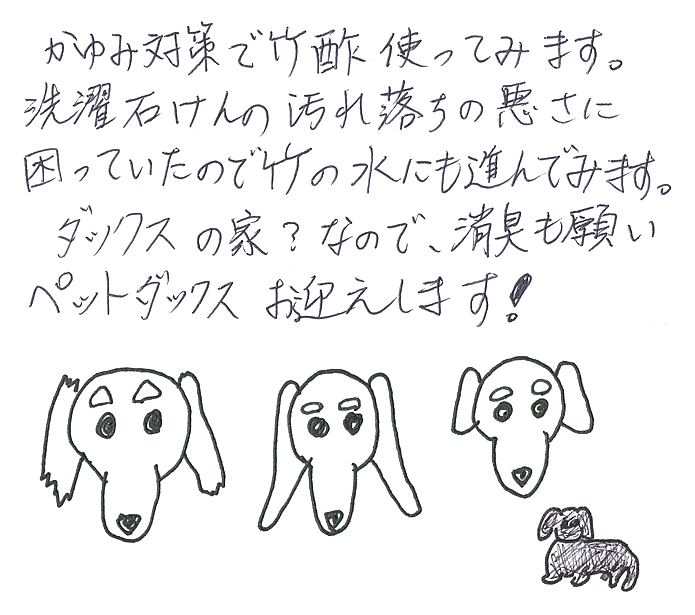 かゆみ対策で竹酢使ってみます。
洗濯石けんの汚れ落ちの悪さに
困っていたので竹の水にも進んでみます。
ダックスの家？なので、消臭も願い
ペットダックスお迎えします！